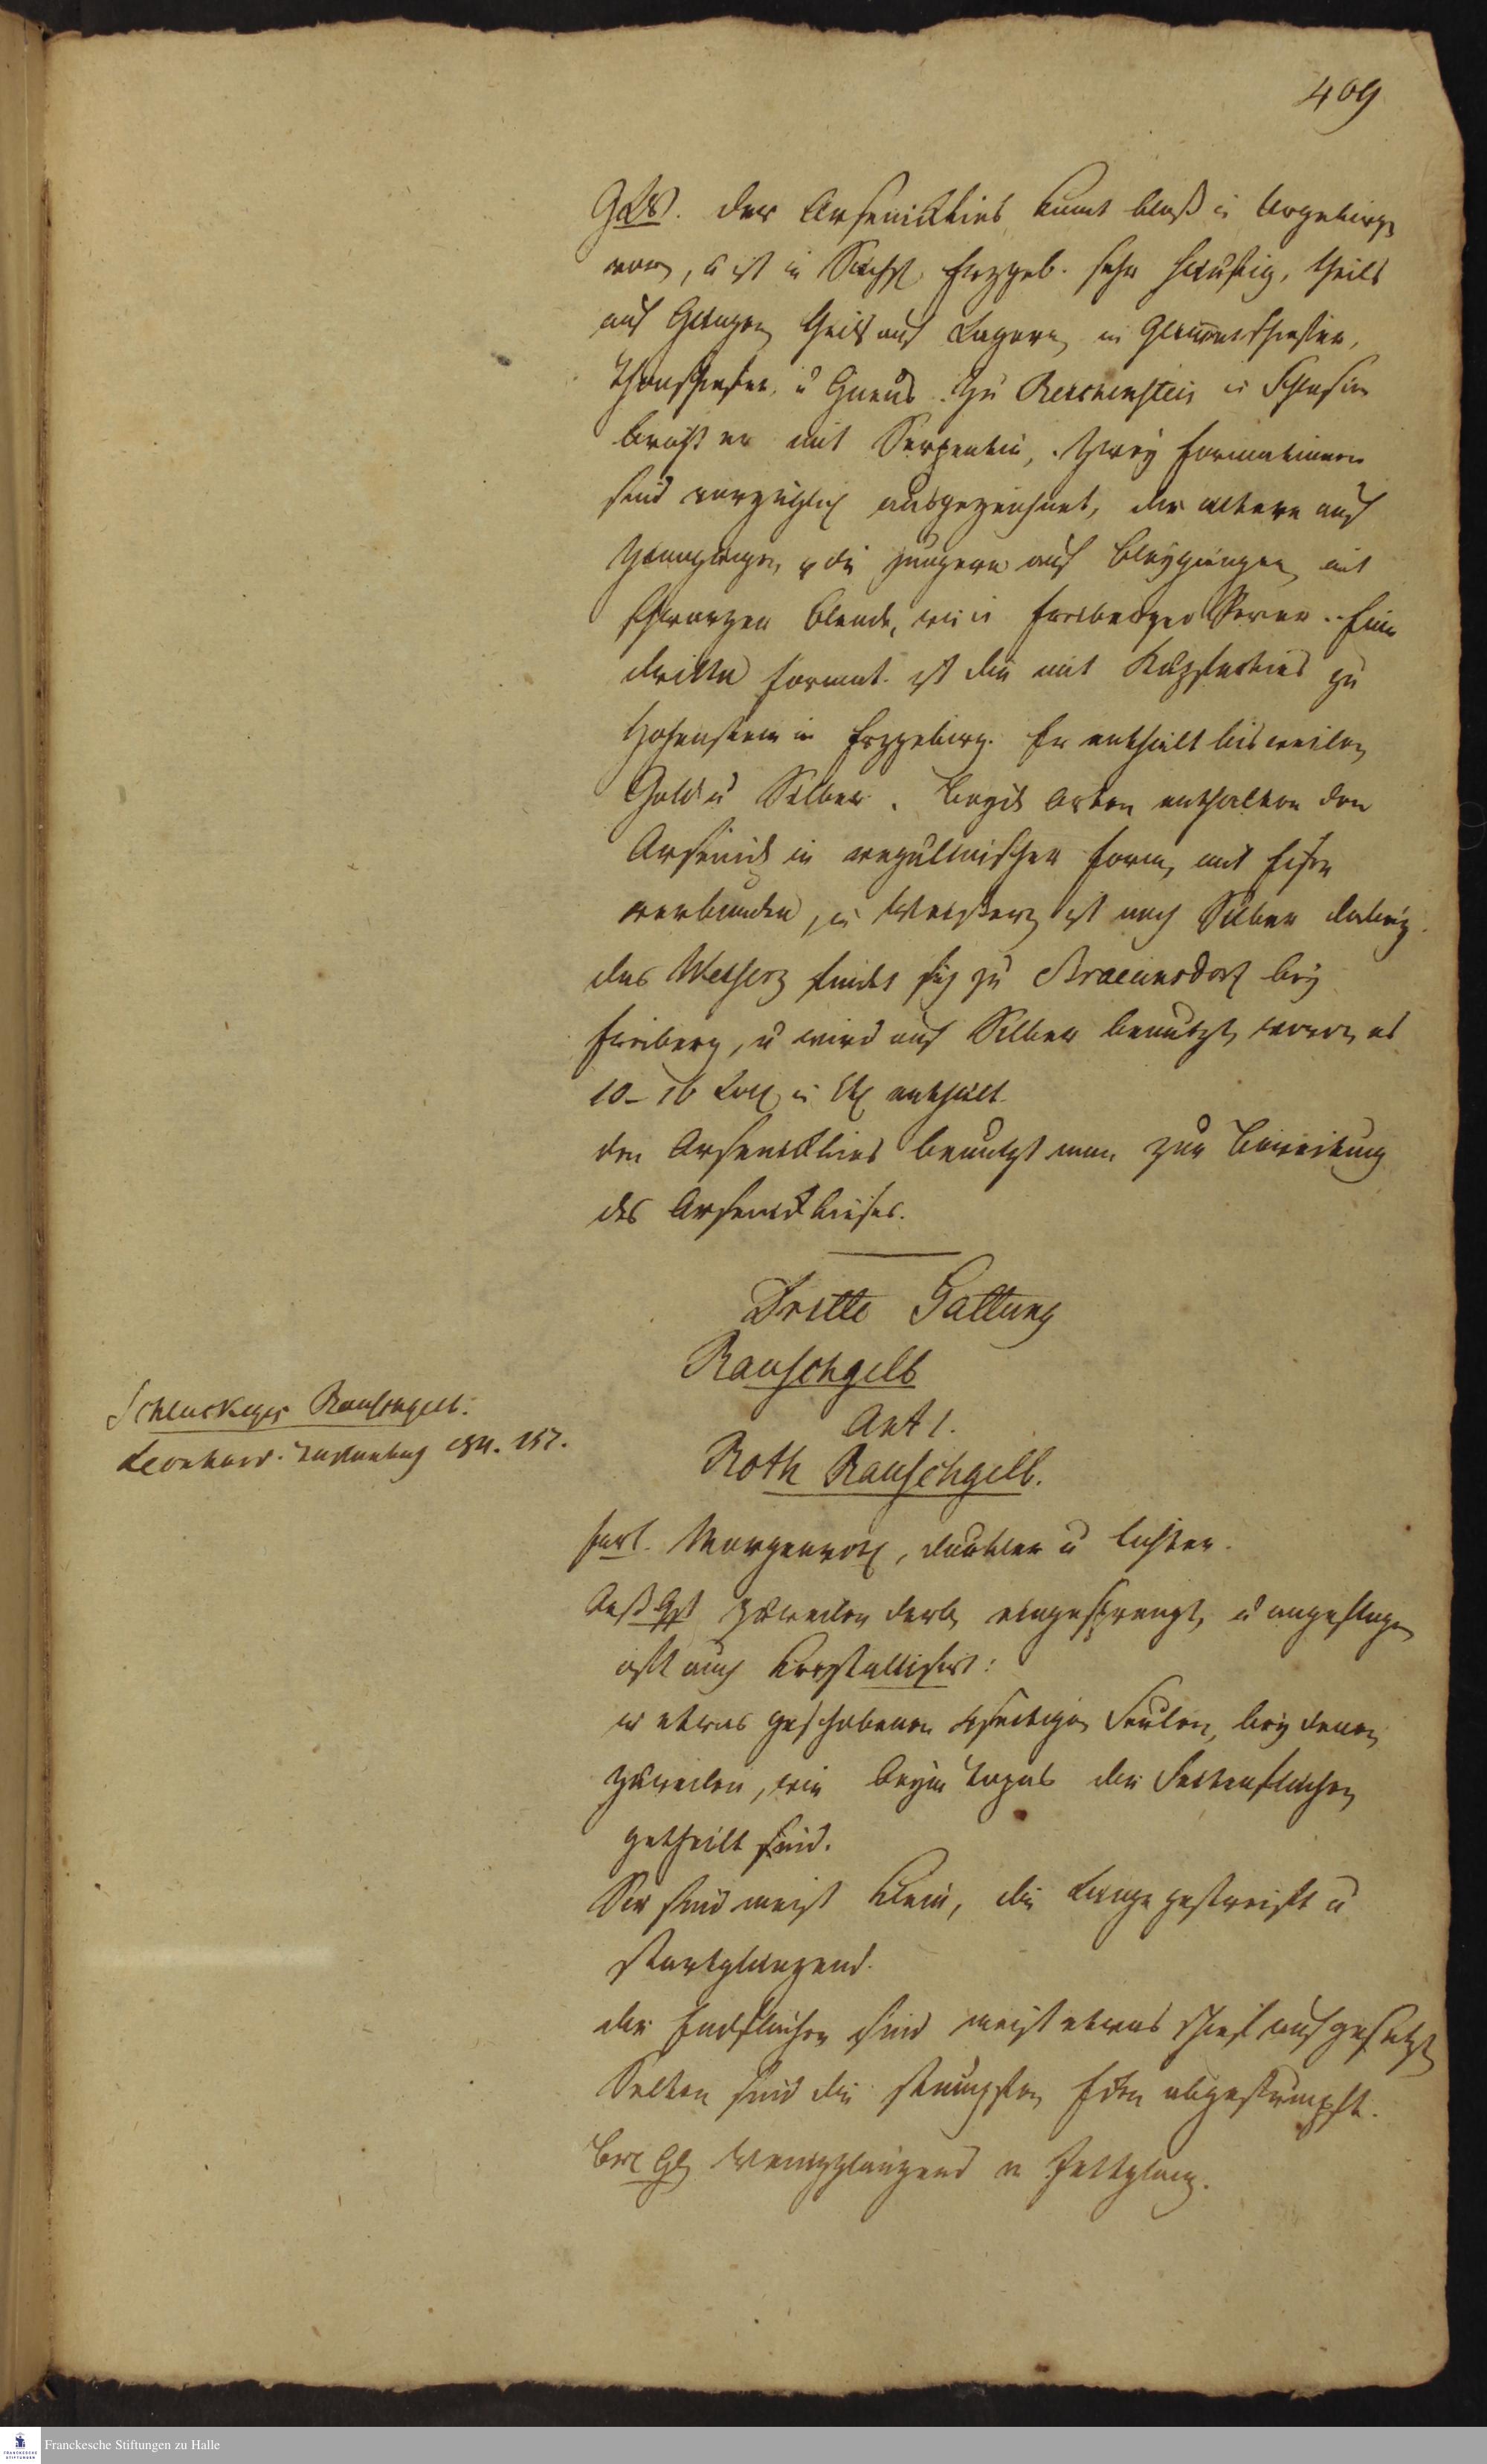 409
Der Arsenikkies kömt bloß in Urgebirge
vor, u ist in Sächs. Erzgeb. sehr häufig, theils
auf Gängen theils auf Lagern in Glimmerschiefer,
Thonschiefer, u Gneus. Zu Reichenstein in Schlesien
bricht er mit Serpentin. Zwey Formationen
sind vorzüglich ausgezeichnet, die ältere auf
Zinngängen, u die jüngere auf Bleygängen mit
schwarzer Blende, wie in Freiberger Revier. Eine
dritte Format. ist die mit Kupferkies zu
Hohenstein in Erzgebirg. Er enthält bisweilen
Gold u Silber. Beyde Arten enthalten den
Arsenik in regulinischer Form, mit Eisen
verbunden, im Weißerz ist noch Silber dabey.
das Weißerz findet sich zu Braeunsdorf bey
Freiberg, u wird auf Silber benutzt, wovon es
10-16 Loth in enthält.
den Arsenikkies benutzt man zur Bereitung
des Arsenikkieses.
Dritte Gattung
Rauschgelb
Art 1.
Roth Rauschgelb.
Schlackiges Rauschgelb.
Leonhard. Taschenbuch 157.
Farb. Morgenroth, dunkler u lichter.
Zuweilen derb, eingesprengt, u angeflogen
oft auch krystallisirt:
in etwas geschobenen 4seitigen Seulen, bey denen
zuweilen, wie beym Topas die Seitenflächen
getheilt sind.
Sie sind meist klein, die Länge gestreift u
starkglänzend.
die Endflächen sind meist etwas schief aufgesetzt
Selten sind die stumpfen Ecken abgestumpft.
Wenigglänzend v. Fettglanz.
Franckesche Stiftungen zu Halle